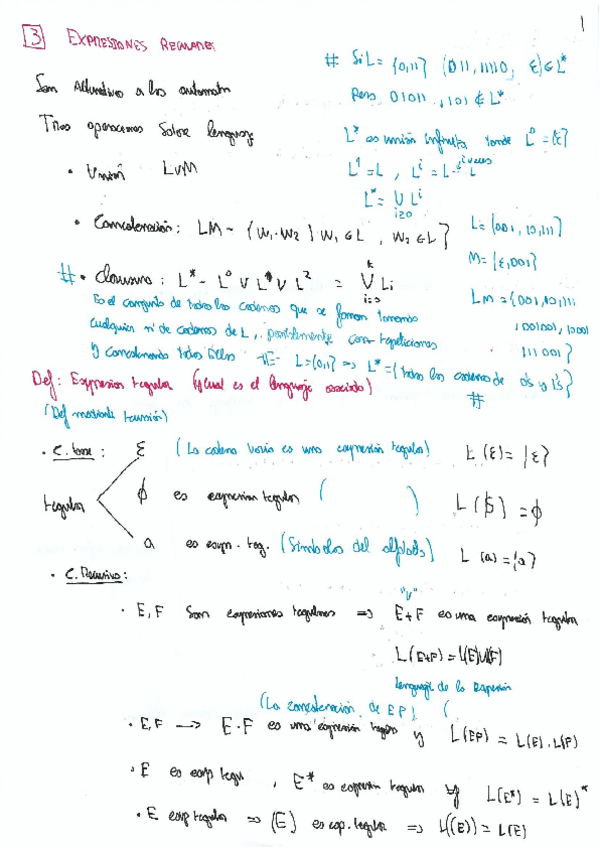 1
3 EXPRESIONES REGULARES
# Si L = {0,11} (011, 11110, ε) ∈ L*
Son Alternativo a los automatas
Pero 01011, 101 ∉ L*
Tres operaciones sobre lenguaje
L* es unión infinita donde L⁰ = {ε}
L¹ = L , Lⁱ = L · · · L (i veces)
• Unión L∪M
L* = ∪ Lⁱ
i≥0
• Concatenación: LM = {w₁·w₂ | w₁ ∈ L , w₂ ∈ L}
L = {001, 10, 111}
M = {ε, 001}
# • clausura : L* = L⁰ ∪ L¹ ∪ L² = ∪ Li
k
i=0
LM = {001, 10, 111
Es el conjunto de todas las cadenas que se forman tomando
1001001, 10001
cualquier nº de cadenas de L, posiblemente con repeticiones
111001}
y concatenando todas ellas L = {0,1} => L* = {todas las cadenas de 0's y 1's}
#
Def: Expresion regular (y cual es el lenguaje asociado)
(Def mediante recursión)
• C. base : ε (La cadena vacia es una expresión regular) L(ε) = {ε}
regular φ es expresion regular ( ) L(φ) = φ
a es expr. reg. (Simbolos del alfabeto) L(a) = {a}
• C. Recursivo:
"∪"
• E, F Son expresiones regulares => E+F es una expresión regular
L(E+F) = L(E)∪L(F)
lenguaje de la expresión
(La concatenación de EF) (
• E, F -> E·F es una expresión regular y L(EF) = L(E).L(F)
• E es exp regu , E* es expresion regular y L(E*) = L(E)*
• E exp regular => (E) es exp. regular => L((E)) = L(E)